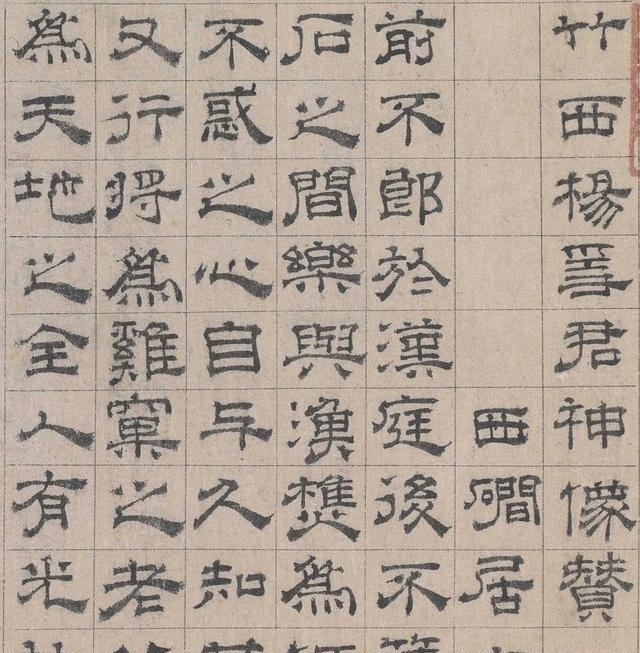 竹西楊君神像贊
西磵居
前不郎於漢庭後不
石之間樂與漁樵爲
不惑之心自与久知
又行將爲雞窠之老
爲天地之全人有光